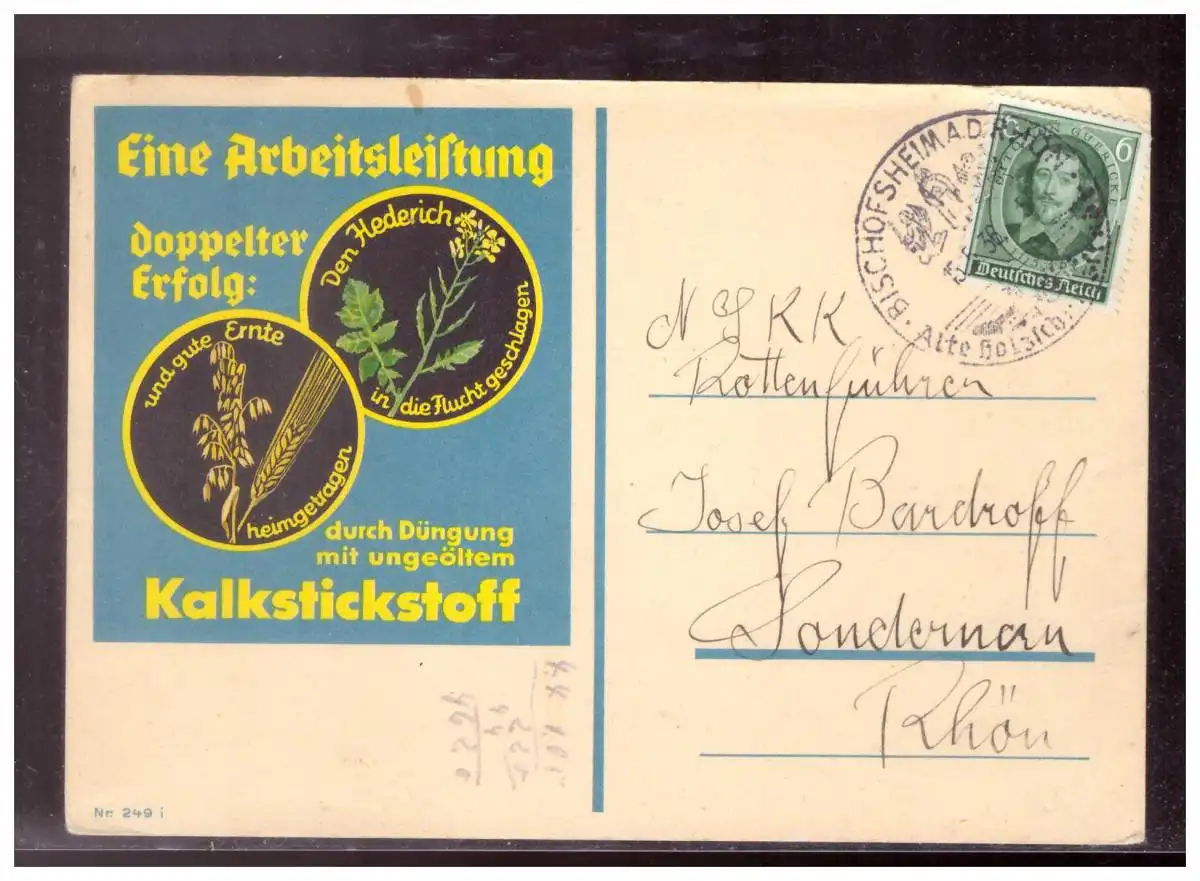 Eine Arbeitsleistung
doppelter
Erfolg:
Den Hederich
in die Flucht geschlagen
und gute Ernte
heimgetragen
durch Düngung
mit ungeöltem
Kalkstickstoff
Nr. 249 i
BISCHOFSHEIM A.D. RHÖN
Alte Holzsch
6
OTTO VON GUERICKE
Deutsches Reich
N S K K
Rottenführer
Josef Bardroff
Sondernau
Rhön